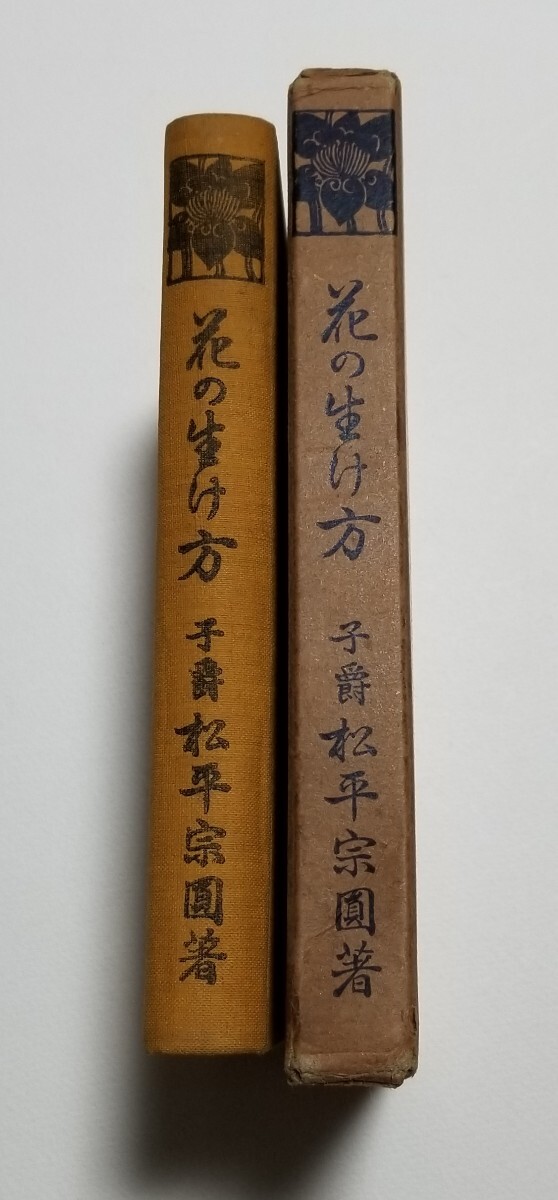 花の生け方 子爵 松平宗圓著
花の生け方 子爵 松平宗圓著